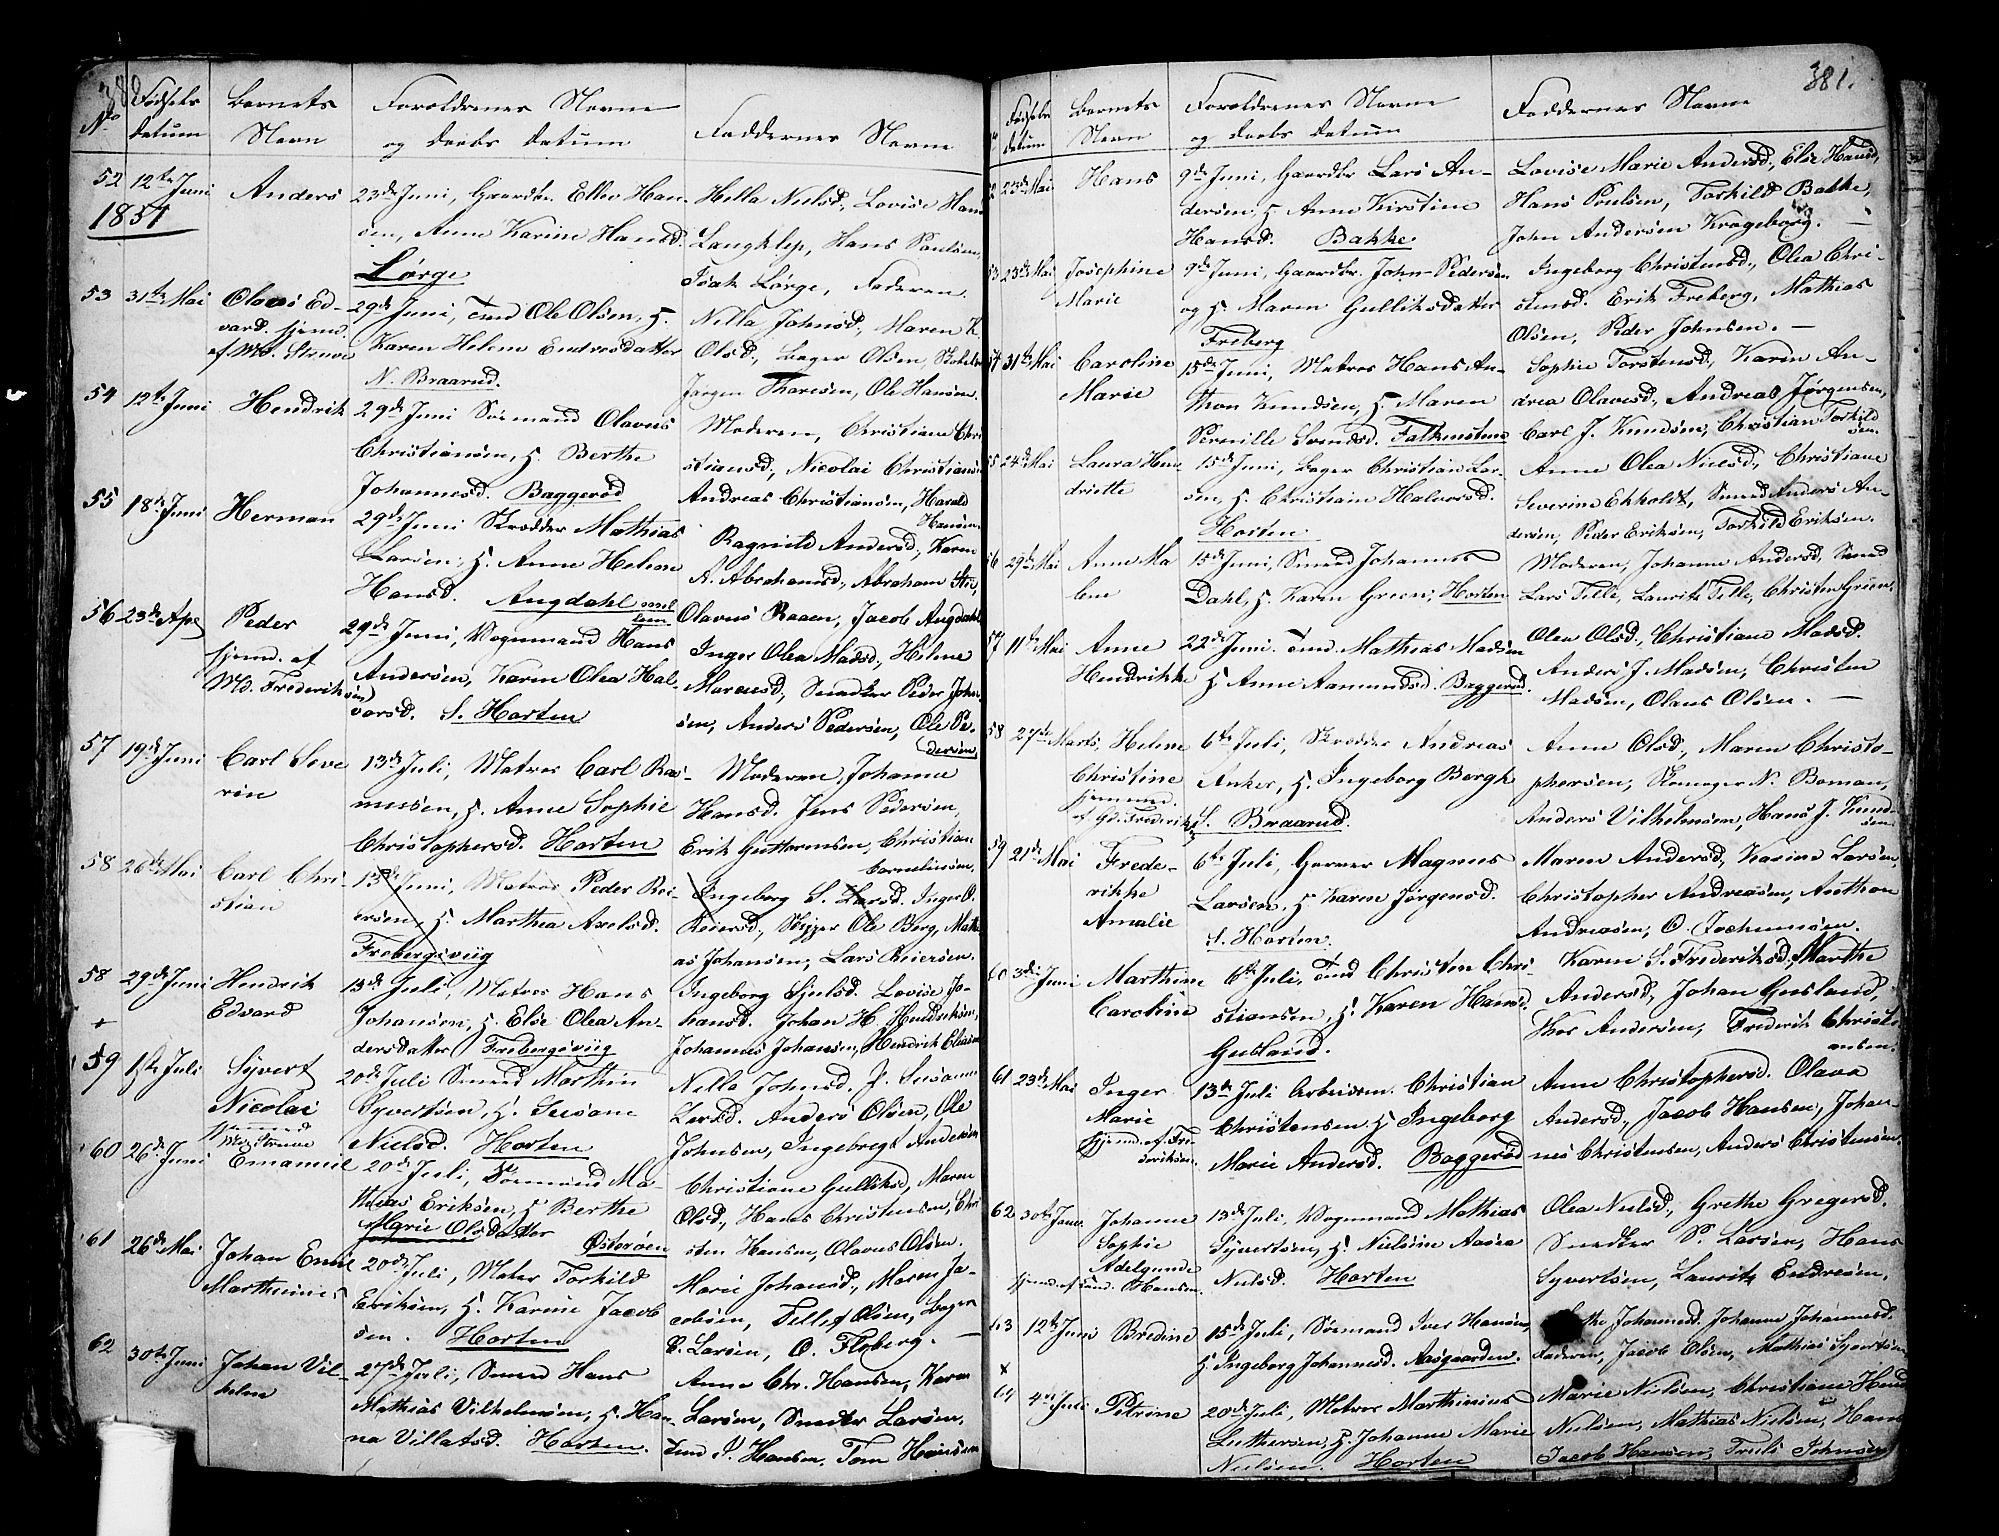 380
No
Fødsels
datum
Barnets
Navn
Forældrenes Navne
og daabs datum
Faddernes Navne
52 12te Juni
1851
Anders
23de Juni, Gaardbr. Ellev Han-
sen, Anne Karine Hansd.
Lørge
Hella Nielsd., Lovise Hans
Langklep, Hans Paulsen,
Isak Lørge, Faderen.
53 31te Mai
Olaves Ed-
vard. hjemd.
af Md. Strüve
29de Juni, Tmd Ole Olsen, H.
Karen Helene Endresdatter
N. Braarud.
Nilla Johnsd., Maren K.
Olsd., Bager Olsen,
Jørgen Tharesen, Ole Hansen.
54 12te Juni
Hendrik
29de Juni Sømand Olavus
Christiansen, H. Berthe
Johannesd. Baggerød
Moderen, Christiane Chri
stiansd., Nicolai Christians
Andreas Christiansen, Harald
Hansen
55 18de Juni
Herman
29de Juni Skrædder Mathias
Larsen, H. Anne Helene
Hansd. Augdahl mel
lem
Ragnild Andersd., Karen
A. Abrahamsd., Abraham
Olavus Raaen, Jacob Augdahl
56 23de Apr
Peder
hjemd. af
Md. Frederiksen
29de Juni, Vognmand Hans
Andersen, Karen Olea Hal-
vorsd. S. Horten
Inger Olea Madsd., Helene
Marcusd., Snedker Peder John
sen, Anders Pedersen, Ole Pe-
dersen
57 19de Juni
Carl Seve
rin
13de Juli, Matros Carl Ras-
mussen, H. Anne Sophie
Christophersd. Horten
Moderen, Johanne
Hansd. Jens Pedersen,
Erik Guttormsen, Christian
Corneliusen,
58 26de Mai
Carl Chri-
stian
13de Juni, Matros Peder Rei-
ersen, H. Marthea Axelsd.
Frebergsviig
Ingeborg S. Larsd. Inger O.
Reiersd., Skipper Ole Berg, Mathi
as Johansen, Lars Reiersen.
58 29de Juni
+
Hendrik
Edvard
13de Juli, Matros Hans
Johansen, H. Else Olea An-
dersdatter Frebergsviig
Ingeborg Sjulsd. Lovise Jo-
hansd. Johan H. Hendriksen,
Johannes Johansen, Hendrik Eliasen
59 1ste Juli
Syvert
Nicolai
hjemmed
Md. Strüve
20de Juli Smed Marthin
Syvertsen, H. Susane
Nielsd. Horten
Nella Johnsd. P. Susanne
Larsd. Anders Olsen, Ole
Johnsen, Ingebregt Andersen
60 26de Juni
Emanuel
20de Juli, Sømand Ma-
thias Eriksen, H. Berthe
Marie Olsdatter Østerøen
Christiane Gulliksd, Maren
Olsd., Hans Christensen, Chri
sten Hansen, Olavus Olsen.
61 26de Mai
Johan Emil
Marthinus
20de Juli, Mater Torkild
Eriksen, H. Karine Jacob
sen. Horten
Marie Johansd., Maren Ja-
cobsen, Tellef Olsen, Bager
C. Larsen, O. Floberg. —
62 30te Juni
Johan Vil-
helm
27de Juli, Smed Hans
Mathias Vilhelmsen, H. Han-
na Villatsd. Horten.
Anne Chr. Hansen, Karen
Larsen, Snedker Larsen,
Tmd P. Hansen, Tom Hansen
381.
Fødsels
datum
Barnets
Navn
Forældrenes Navne
og daabs datum
Faddernes Navne
2 23de Mai
Hans
9de Juni, Gaardbr Lars An-
dersen, H. Anne Kirstine
Hansd. Bakke.
Lovise Marie Andersd., Else Hansd,
Hans Poulsen, Torkild Bakke,
John Andersen Krogeborg. —
53 23de Mai
Josephine
Marie
9de Juni, Gaardbr. John Pedersen
og H. Maren Gulliksdatter
Freberg
Ingeborg Christensd., Olea Chri-
stensd. Erik Freberg, Mathias
Olsen, Peder Johnsen. —
54 31te Mai
Caroline
Marie
15de Juni, Matros Hans An-
thon Knudsen, H. Maren
Pernille Svendsd. Falkensteen
Sophie Torstensd., Karen An-
drea Olavesd., Andreas Jørgensen,
Carl J. Knudsen, Christian Torkild
sen.
55 24de Mai
Laura Hen
driette
15de Juni, Bager Christian Lar-
sen, H. Christiain Halvorsd.
Horten.
Anne Olea Nielsd., Christiane
Severine Ekholdt, Smed Anders An-
dersen, Peder Eriksen, Torkild Eriksen.
56 29de Mai
Anne Ma
lene
15de Juni, Smed Johannes
Dahl, H. Karen Green, Horten
Moderen, Johanne Andersd., Smed
Lars Tille, Lauritz Tille, Christen Green.
57 11te Mai
Anne
Hendrikke
22de Juni. Tmd Mathias Madsen
H Anne Aamundsd. Baggerød.
Olea Olsd., Christiane Madsd.
Anders J. Madsen, Christen
Madsen, Olaus Olsen. —
58 27de Marts,
Helene
Christine
hjemmed.
af Gd. Frederiks
6te Juli, Skrædder Andreas
Anker, H. Ingeborg Bergh
S. Braarud.
Anne Olsd., Maren Christo-
phersen, Skomager N. Boman,
Anders Vilhelmsen, Hans J. Knud
sen.
59 21de Mai
Frede-
rikke
Amalie
6te Juli, Garver Magnus
Larsen, H. Karen Jørgensd.
S. Horten.
Maren Andersd., Karine Larsen,
Christopher Andreasen, Anthon
Andreasen, O. Jochumsen.
60 3die Juni
Marthine
Caroline
6te Juli, Tmd Christen Chri-
stiansen, H. Karen Hansd
Gusland.
Karen S. Frederiksd., Marthe
Andersd., Johan Gusland,
Thor Andersen, Frederik Christi
ansen.
61 23de Mai
Inger
Marie
hjemd. af Fre-
deriksen.
13de Juli Arbeidsm. Christian
Christensen, H Ingeborg
Marie Andersd. Baggerød
Anne Christophersd. Olava
Andersd., Jacob Hansen, Johan-
nes Christensen, Anders Christensen
62 30te Janr.
Johanne
Sophie
Adelgunde
hjemd af Jmd. Hansen.
13de Juli, Vognmand Mathias
Syvertsen, H. Nielsine Aasea
Nielsd. Horten
Olea Nielsd., Grethe Gregersd.
Snedker P. Larsen, Hans
Syvertsen, Lauritz Endresen.
63 12te Juni
x
Bredine
15de Juli, Sømand Iver Hansen,
H. Ingeborg Johannesd. Aasgaarden.
the Johannesd. Johanne Johannesd.
Faderen, Jacob Olsen, Mathias Syvertsen
64 4de Juli
Petrine
20de Juli, Matros Marthinius
Luthersen, H. Johanne Marie
Nielsen. Horten
Marie Nielsen, Christiane Hend
Nielsen, Mathias Nielsen, Hans
Jacob Hansen, Truls Johnsen